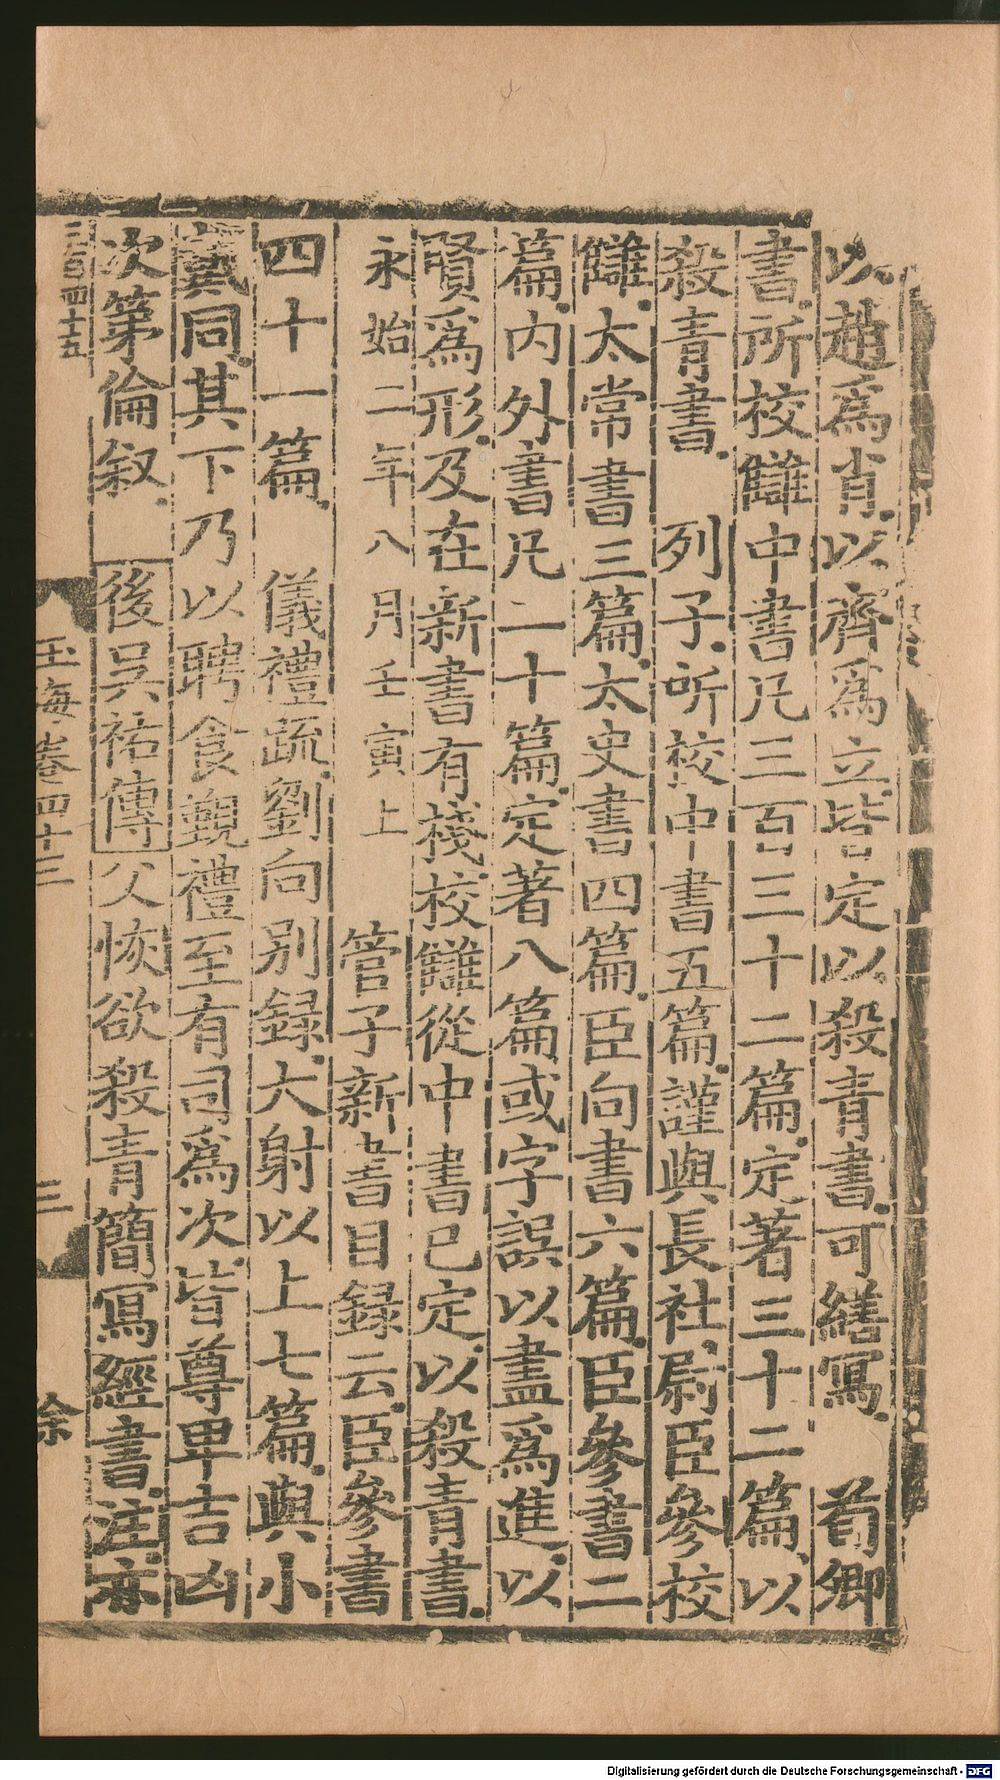 以趙爲肖以齊爲立皆定以殺青書可繕寫　荀卿
書所校讎中書凡三百三十二篇定著三十二篇以
殺青書　列子所校中書五篇謹與長社尉臣參校
讎太常書三篇太史書四篇臣向書六篇臣參書二
篇内外書凡二十篇定著八篇或字誤以盡爲進以
賢爲形及在新書有棧校讎從中書已定以殺青書
永始二年八月壬寅上　管子新書目録云臣參書
四十一篇　儀禮疏劉向别録大射以上七篇與小
戴同其下乃以聘食覲禮至有司爲次皆尊卑吉凶
次第倫叙　後吳祐傳父恢欲殺青簡寫經書注亦
三百四十五
玉海卷四十三
三
余
Digitalisierung gefördert durch die Deutsche Forschungsgemeinschaft - DFG